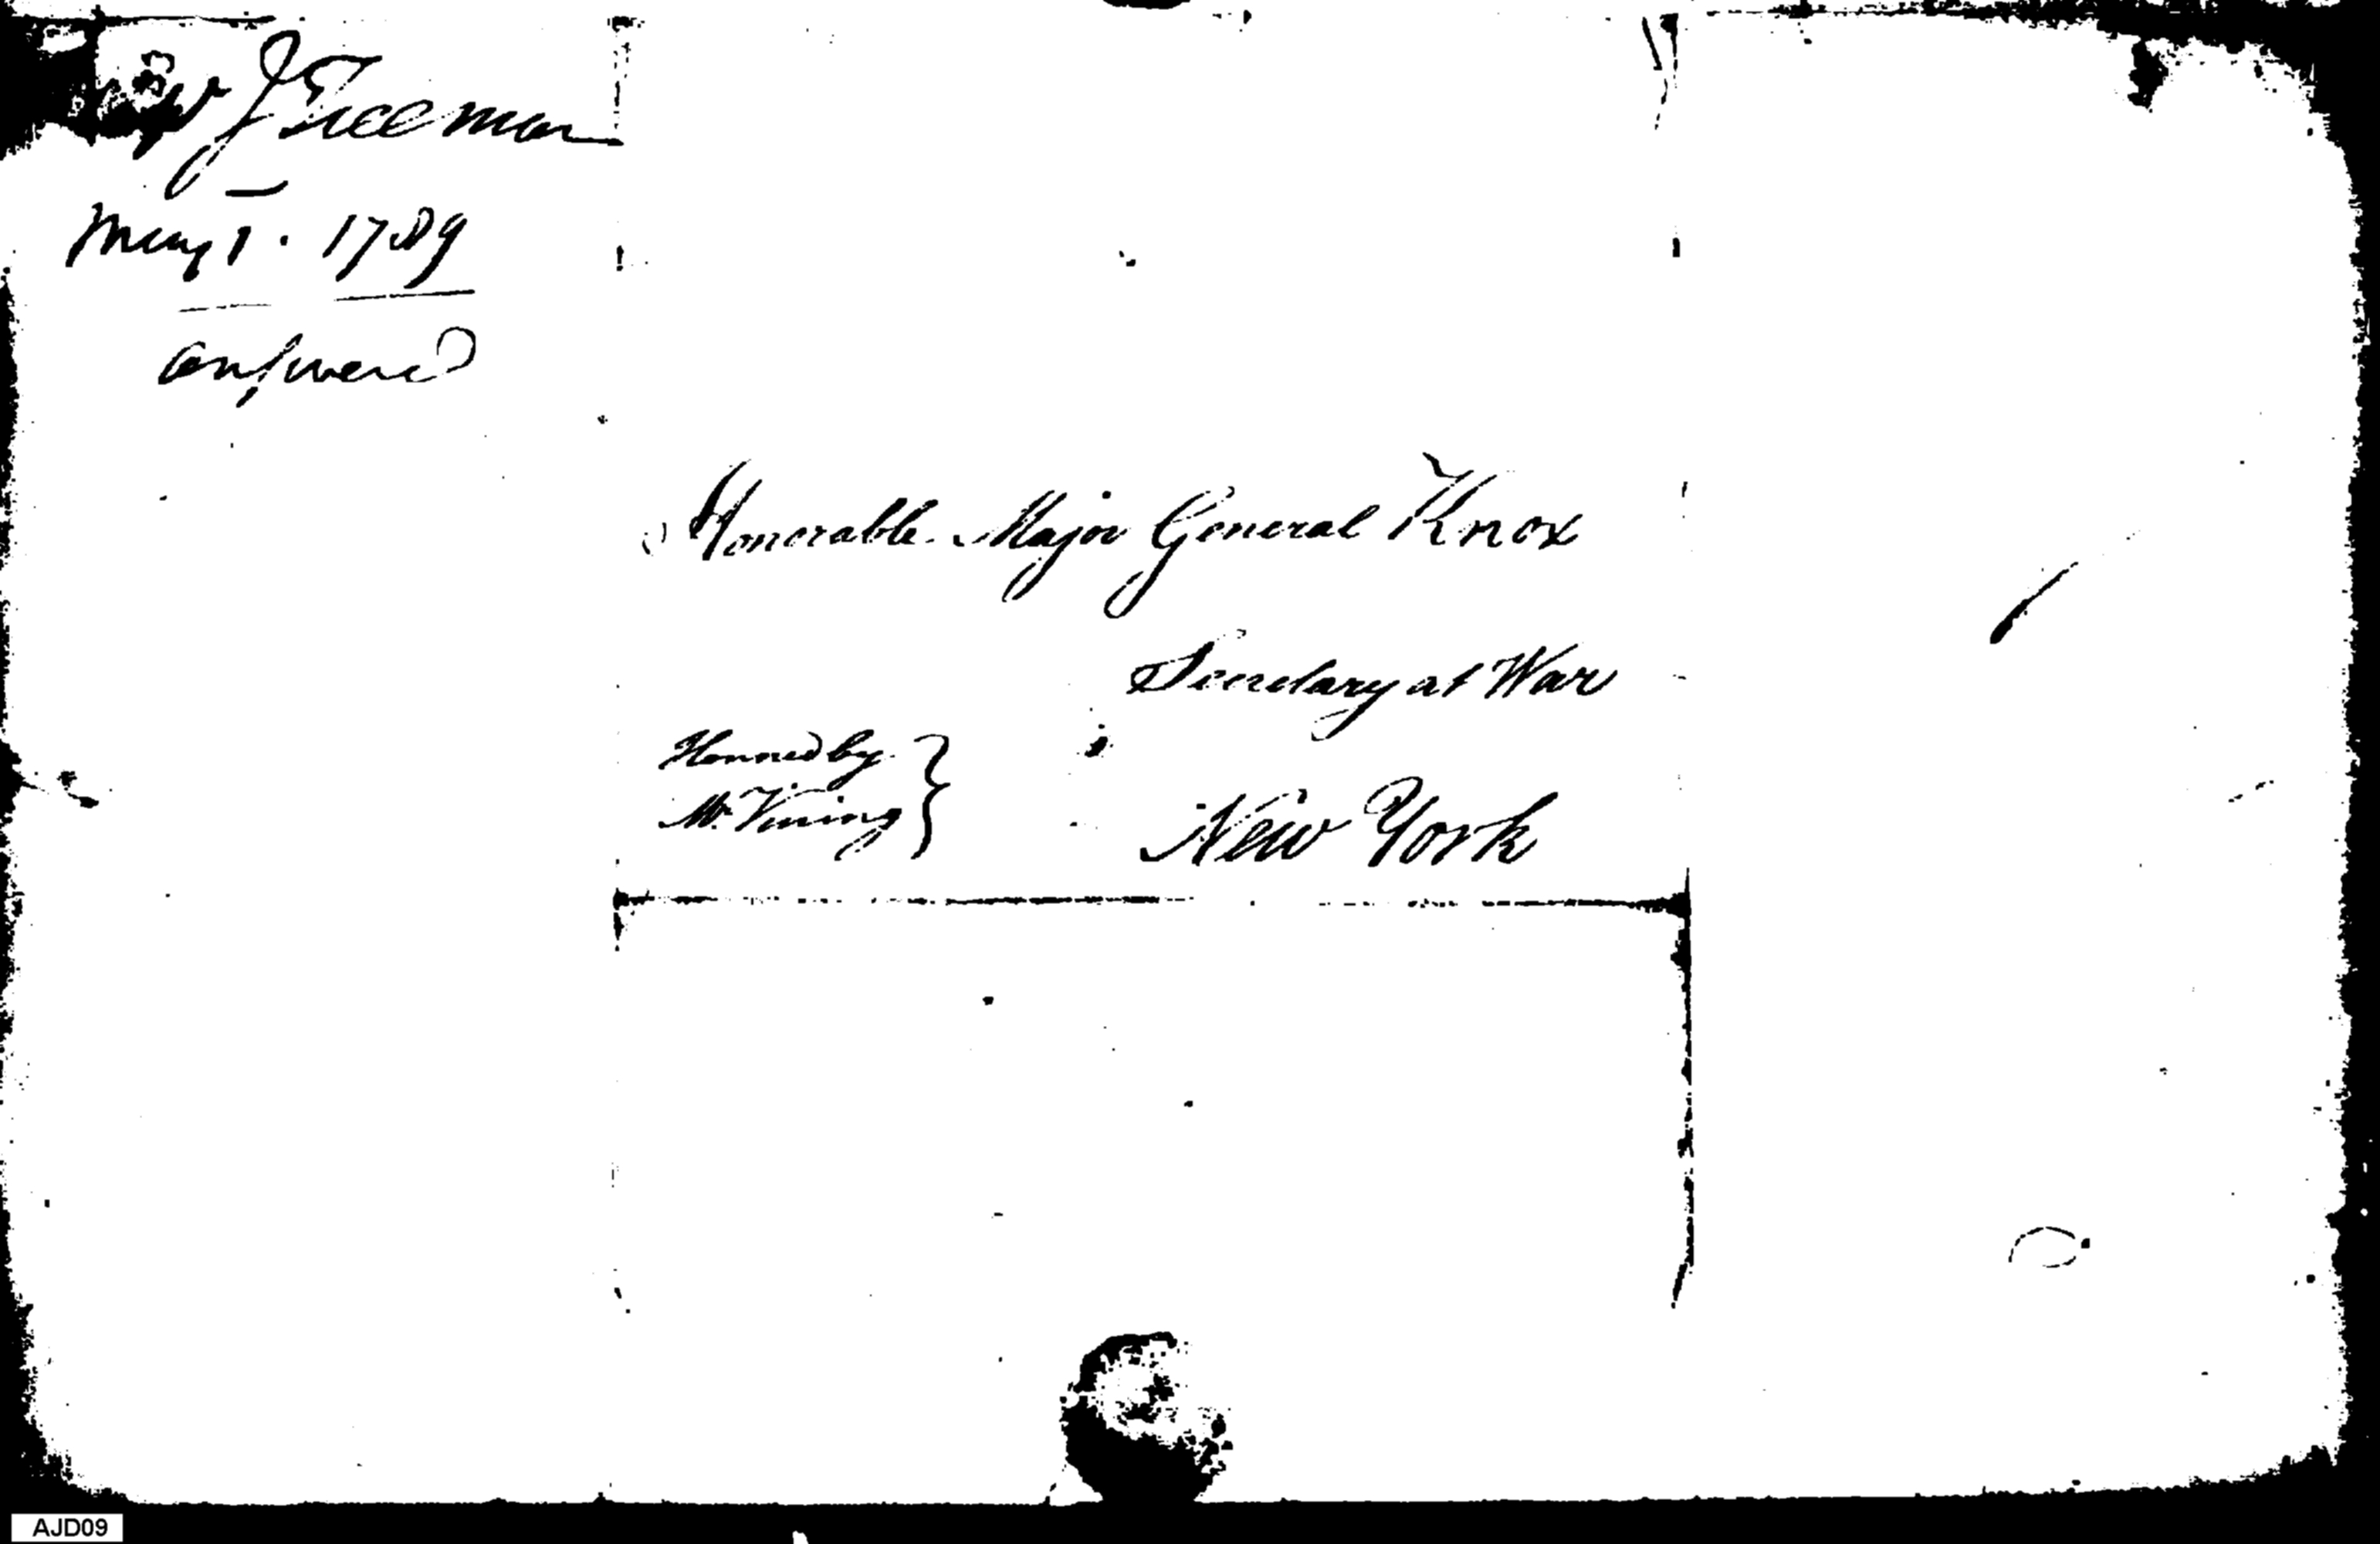 J Freeman
May 1. 1789
answered
Honorable Major General Knox
Secretary at War
Honored by
Mr. Vining
New York
AJD09